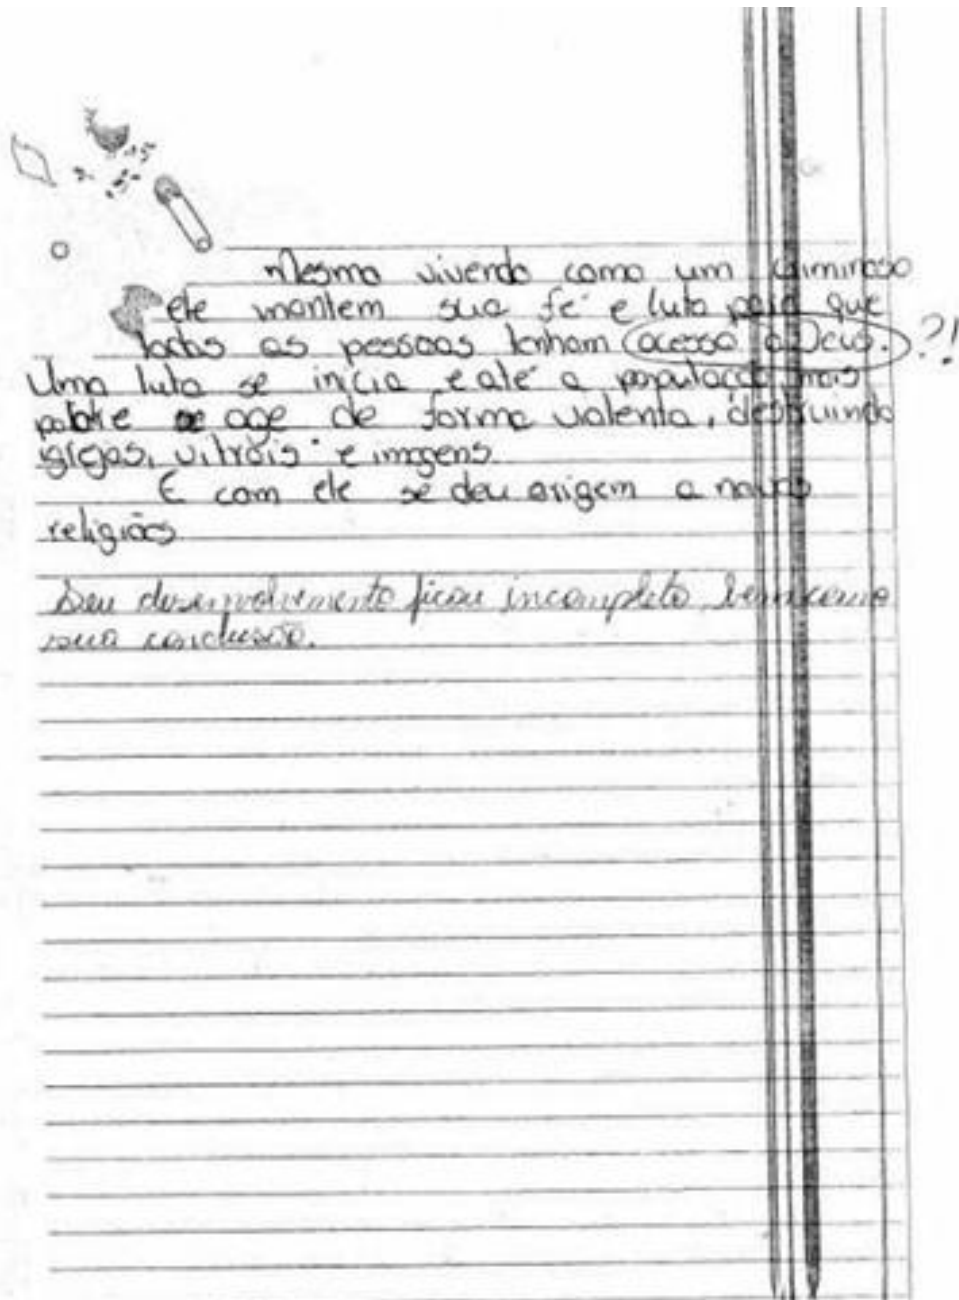 Mesmo vivendo como um criminoso
ele mantem sua fé e luta para que
todas as pessoas tenham acesso a Deus. ?!
Uma luta se inicia e até a população mais
pobre se age de forma violenta, destruindo
igrejas, vitrais e imgens.
E com ele se deu origem a novas
religiões
Seu desenvolvimento ficou incompleto, bem como
sua conclusão.